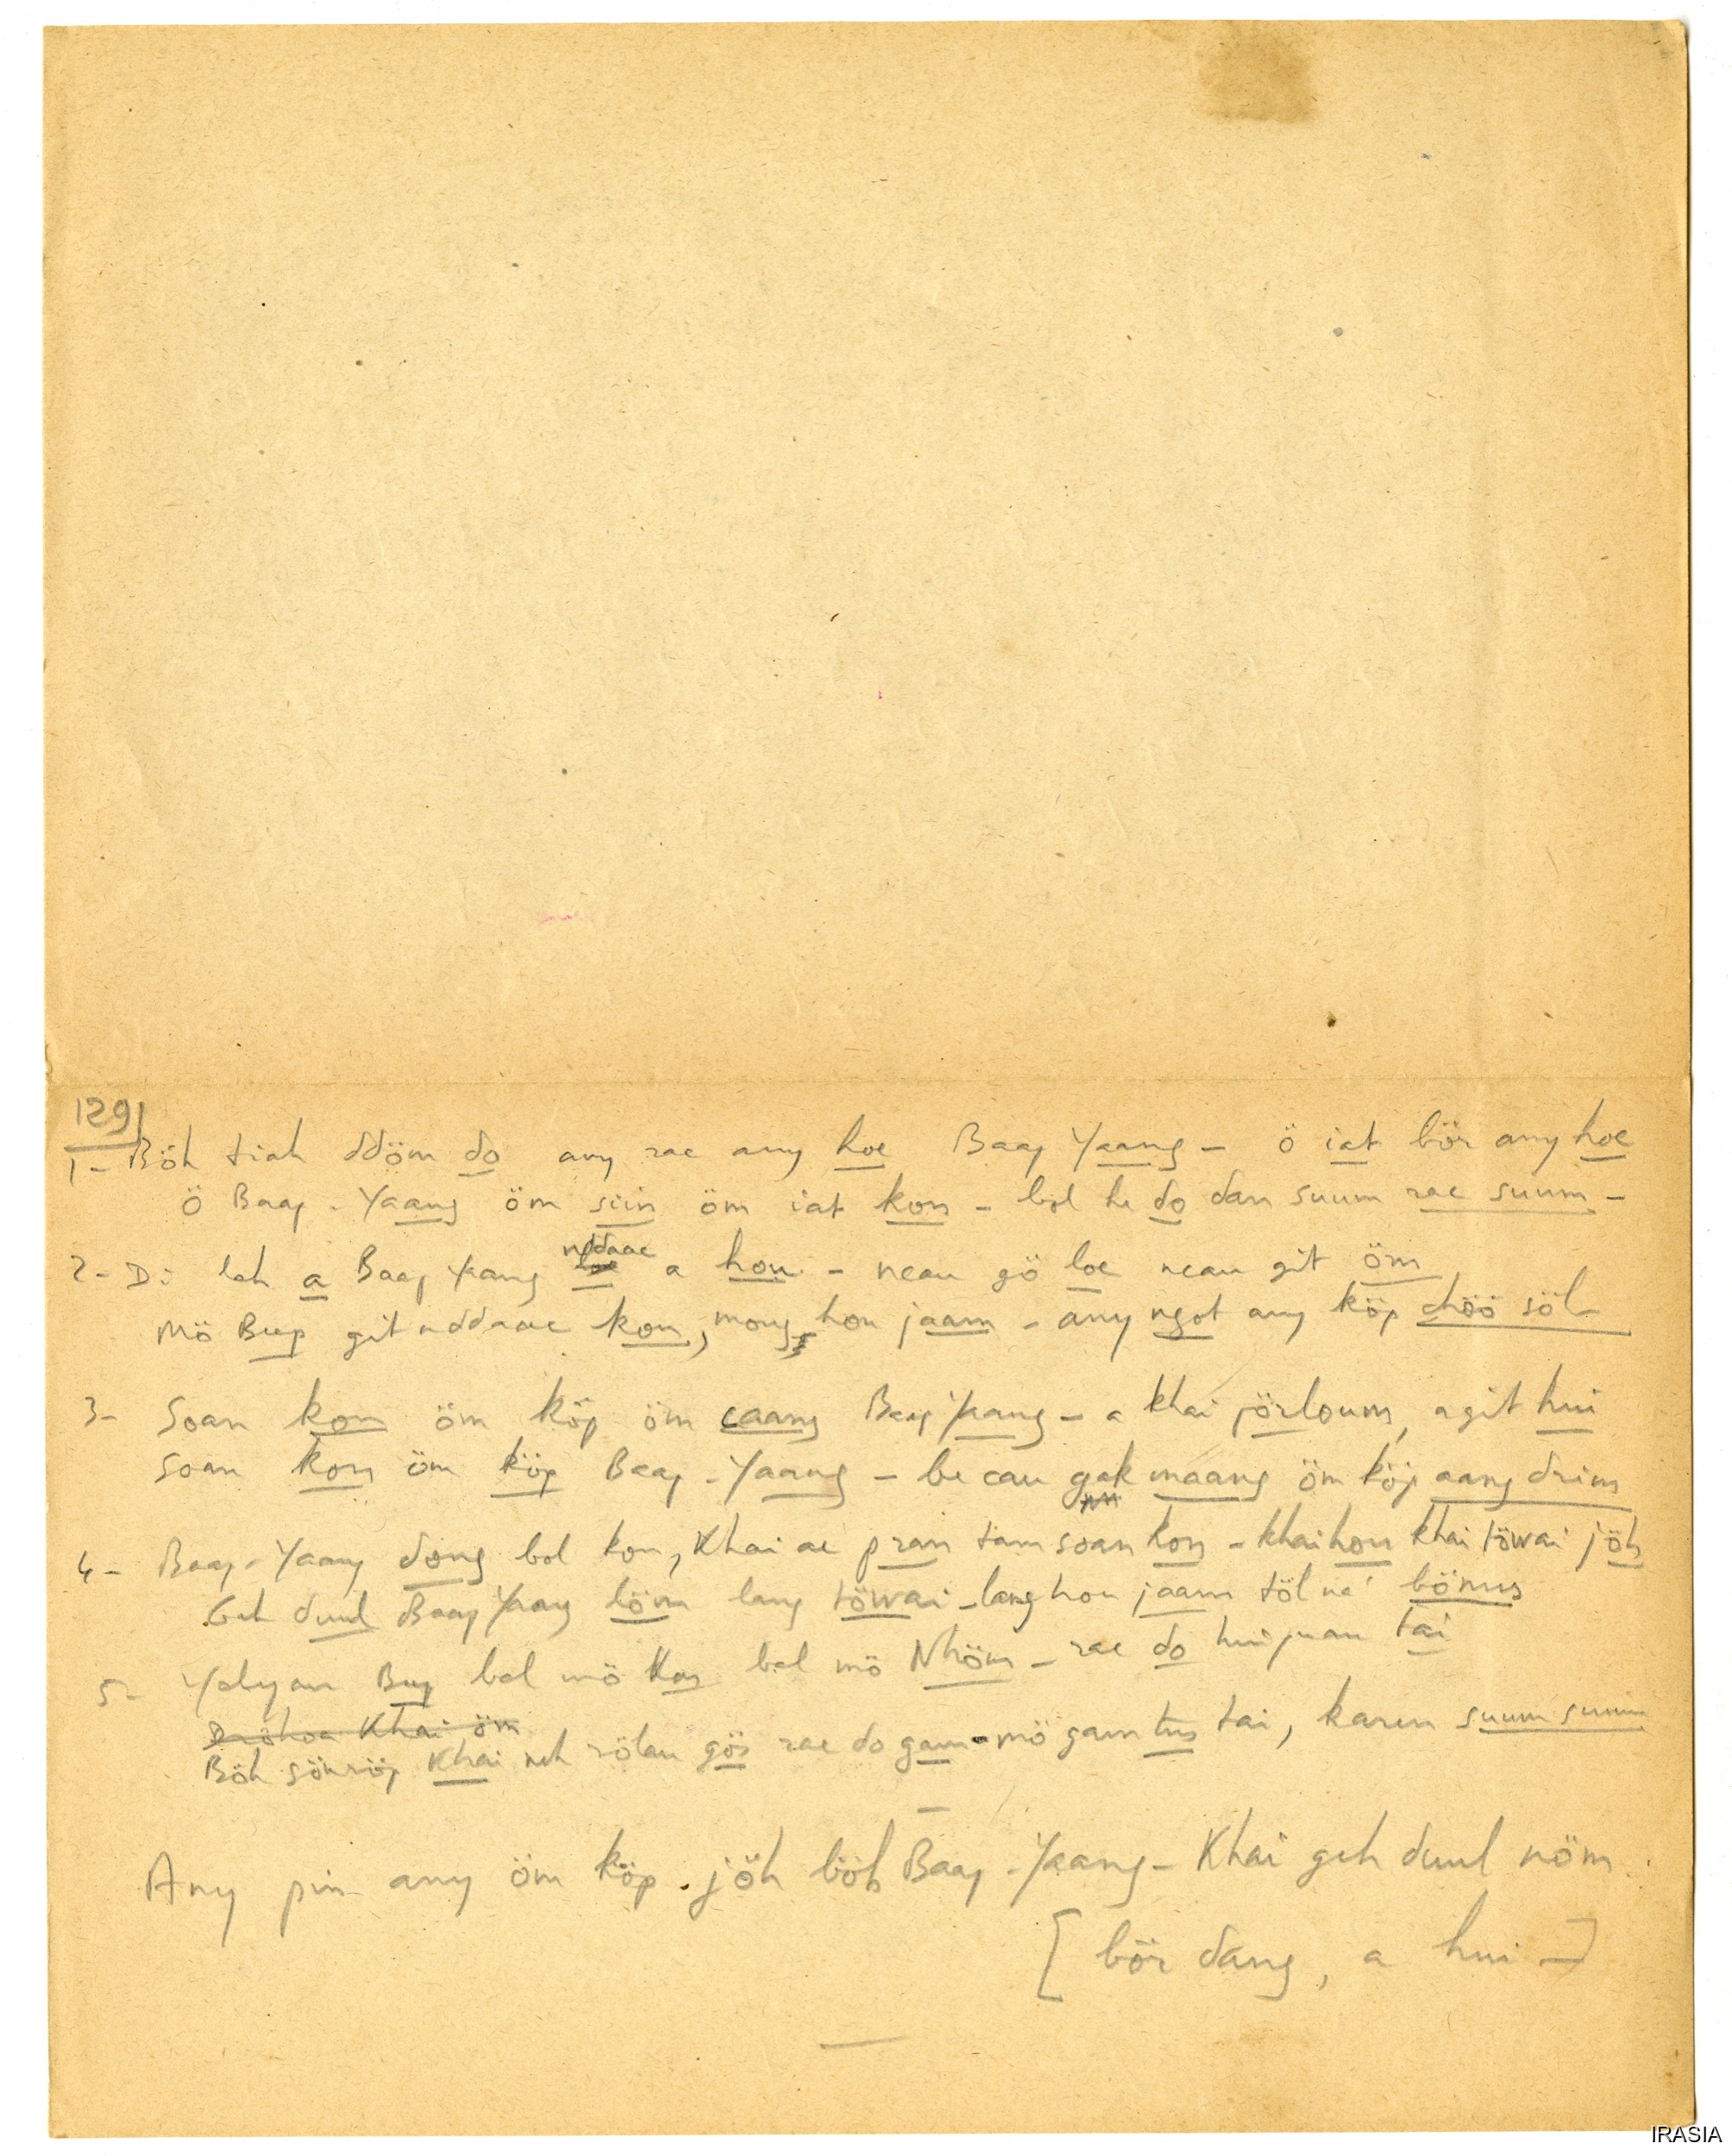 129
1- Böh tiah ddöm do any rae any hoe Baap Yaang - ö iat bör any hoe
ö Baap - Yaang öm siin öm iat kon - bol he do dan suum rae suum -
2- Di lah a Baap Yaang nddaac a hou - neau gö loe neau git öm
mö Beep git nddaac kon, mong hou jaam - any ngot any köp chöö söl
3- Soan kon öm köp öm caang Baap Yaang - a khai pörloum, a git hui
soan kon öm köp Baap - Yaang - be cau gak maang öm köp aang drim
4- Baap - Yaang dong bol kon, Khai ae pran tam soan kon - khai hou khai töwai jöh
Geh duul Baap Yaang löm lang töwai - lang hou jaam töl na' bönus
5- Yalyau Bup bol mö Kon bol mö Nhöm - rae do hui juau tai
Dröhoa Khai öm
Böh sönröp Khai neh rölau gös rae do gam - mö gam tus tai, karen suum suum
Any pin any öm köp jöh böh Baap - Yaang - Khai geh duul nöm
[ bör dang, a hui - ]
IRASIA